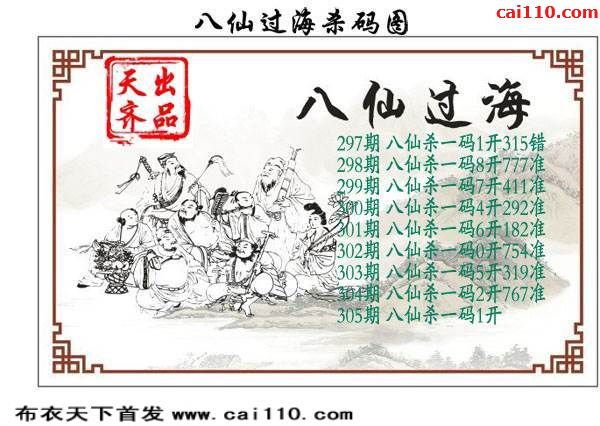 八仙过海杀码图
cai110.com
天齐出品
八仙过海
297期 八仙杀一码1开315错
298期 八仙杀一码8开777准
299期 八仙杀一码7开411准
300期 八仙杀一码4开292准
301期 八仙杀一码6开182准
302期 八仙杀一码0开754准
303期 八仙杀一码5开319准
304期 八仙杀一码2开767准
305期 八仙杀一码1开
布衣天下首发 www.cai110.com